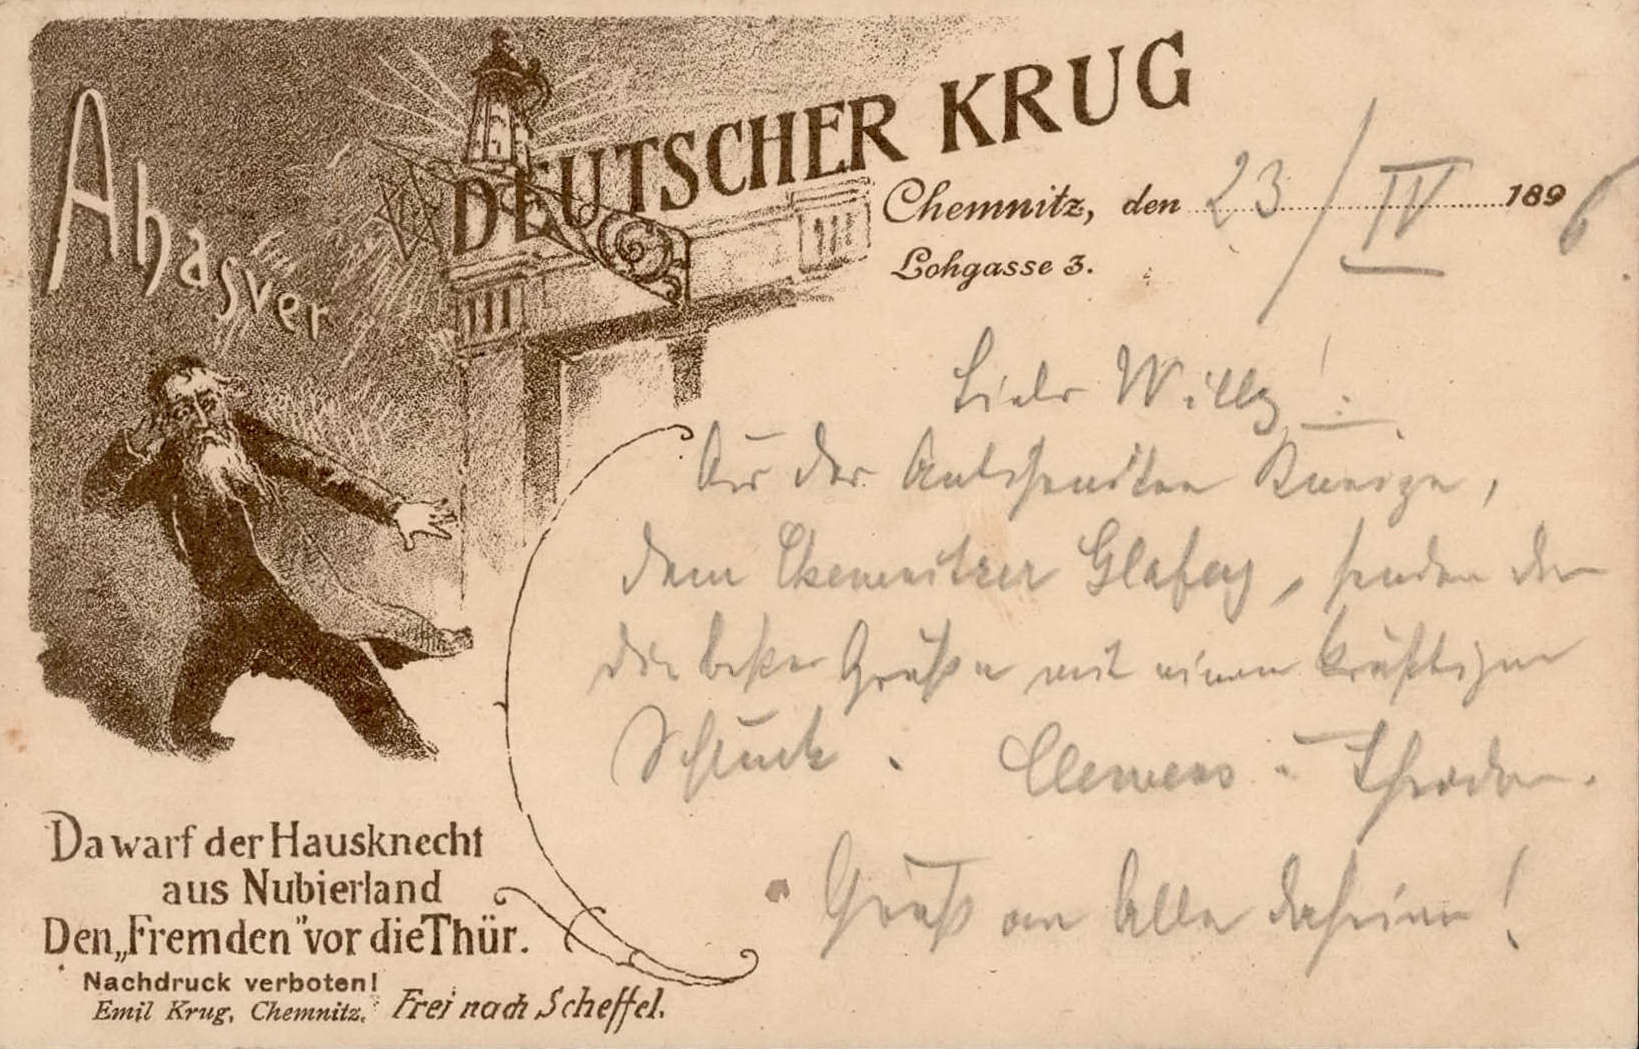 Ahasver
DEUTSCHER KRUG
Chemnitz, den 23/IV 1896
Lohgasse 3.
Lieber Willy!
Aus der Antisemiten Kneipe,
dem Chemnitzer, senden dir
die besten Grüße mit einem kräftigen
Schluck. Clemens - Theodor.
Gruß an Alle daheim!
Da warf der Hausknecht
aus Nubierland
Den „Fremden" vor die Thür.
Nachdruck verboten!
Emil Krug, Chemnitz. Frei nach Scheffel.